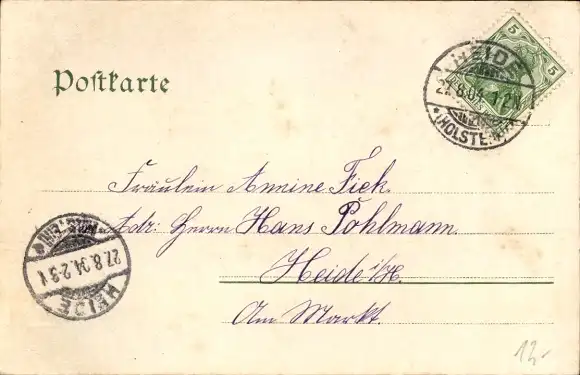 Postkarte
5 5
HEIDE
27.8.04. 1-2N
* (HOLSTEIN) *
Fräulein Annine Fick.
Adr: Herrn Hans Pohlmann
Heide i/H.
Am Markt.
HEIDE
27.8.04. 2-3 N
12.-